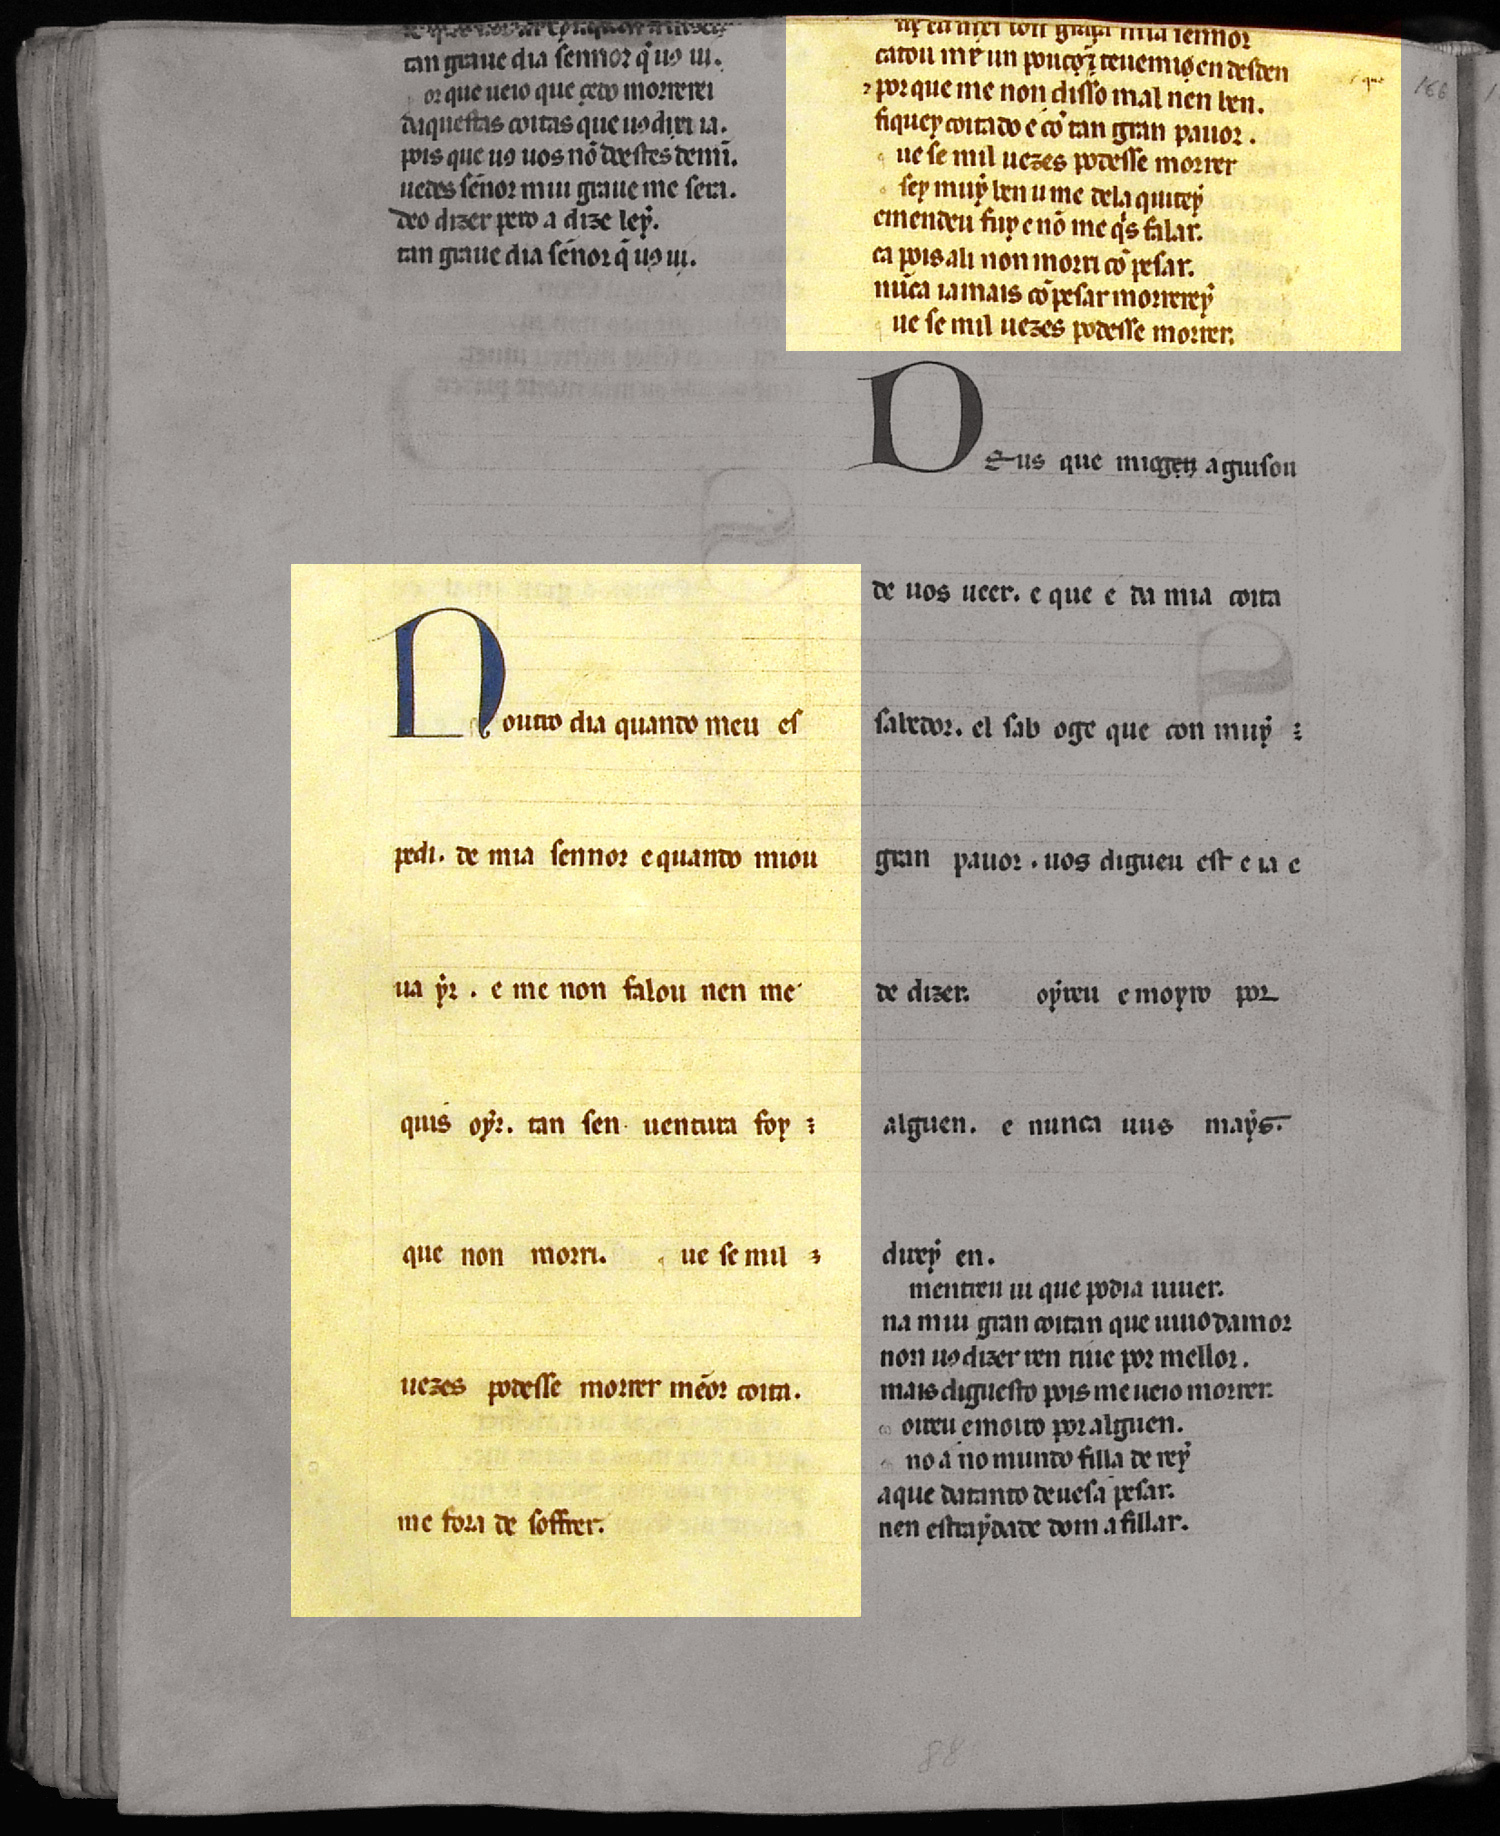 tan graue dia sennor q̄ uꝯ ui.
or que ueio que çedo morrerei
daquestas coitas que uꝯ dixi ia.
pois que uꝯ uos nō doestes demī.
uedes sēnor mui graue me sera.
deo dizer pero a dize leẏ.
tan graue dia sēnor q̄ uꝯ ui.
N outro dia quando meu es
pedi. de mia sennor e quando miou
ua ẏr. e me non falou nen me
quis oẏr. tan sen uentura foy
que non morri. ue se mil
uezes podesse morrer mēor coita.
me fora de soffrer.
uy eu mei con graça mia sennor
catou me un pouco ⁊ teuemiꝯ en desden
⁊ por que me non disso mal nen ben.
fiquey coitado e cō tan gran pauor.
ue se mil uezes podesse morrer
sey muẏ ben u me dela quitey
ementeu fuy e nō me q̇s falar.
ca pois ali non morri cō pesar.
nūca iamais cō pesar morrereẏ
ue se mil uezes podesse morrer.
que
166
D Eus que migoẏ aguisou
de uos ueer. e que e da mia coita
sabedor. el sab oge que con muẏ
gran pauor. uos digueu est e ia e
de dizer. oẏreu e moyro por
alguen. e nunca uus maẏs.
direẏ en.
mentreu ui que podia uiuer.
na mui gran coitan que uiuo damor
non uꝯ dizer ren tiue por mellor.
mais diguesto pois me ueio morrer.
oireu emoiro por alguen.
no a no mundo filla de reẏ
aque datanto deuesa pesar.
nen estraẏdade dom a fillar.
88